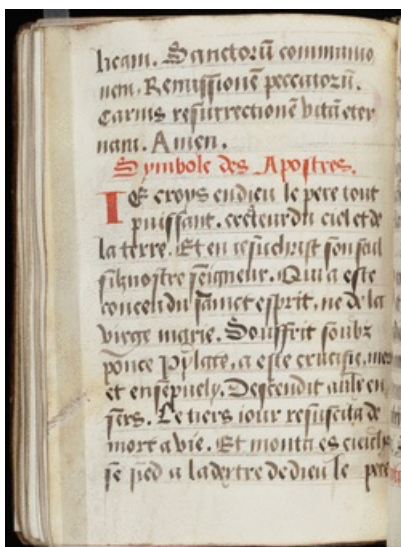 licam. Sanctorū communio
nem. Remissionē peccatorū.
Carnis resurrectionē vitā eter
nam. Amen.
Symbole des Apostres.
IE croys en dieu le pere tout
puissant. createur du ciel et de
la terre. Et en iesuchrist son seul
filz nostre seigneur. Qui a este
conceu du sainct esprit. ne de la
virge marie. Souffrit soubz
ponce pylate. a este crucifie, mor
et ensepuely. Descendit aulx en
fers. Le tiers iour resuscita de
mort a vie. Et monta es cieulx
se sied a la dextre de dieu le pere